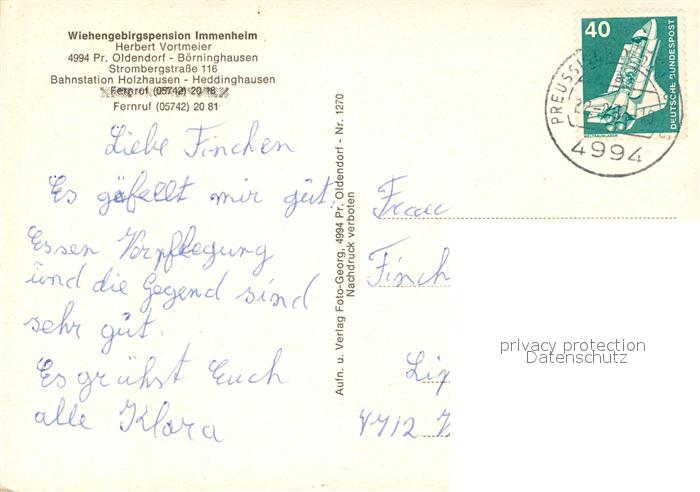 Wiehengebirgspension Immenheim
Herbert Vortmeier
4994 Pr. Oldendorf - Börninghausen
Strombergstraße 116
Bahnstation Holzhausen - Heddinghausen
Fernruf (05742) 20 18
Fernruf (05742) 20 81
40
DEUTSCHE BUNDESPOST
WELTRAUMLABOR
4994
Liebe Finchen
Es gefellt mir gut.
Essen Verpflegung
und die Gegend sind
sehr gut.
Es grühst Euch
alle Klara
Aufn. u. Verlag Foto-Georg, 4994 Pr. Oldendorf - Nr. 1270
Nachdruck verboten
Frau
Finch
4712
privacy protection
Datenschutz